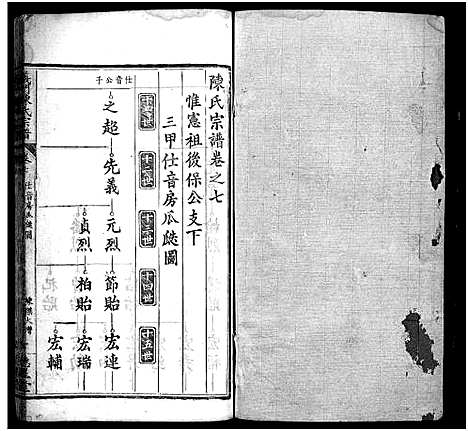 陳氏宗譜卷之七
惟憲祖後保公支下
三甲仕音房瓜瓞圖
十一世 十二世 十三世 十四世 十五世
仕音公子
之超 先義 元烈 節貽 宏連
貞烈 柏貽 宏瑞
宏輔
陳氏宗譜
仕音房瓜瓞圖